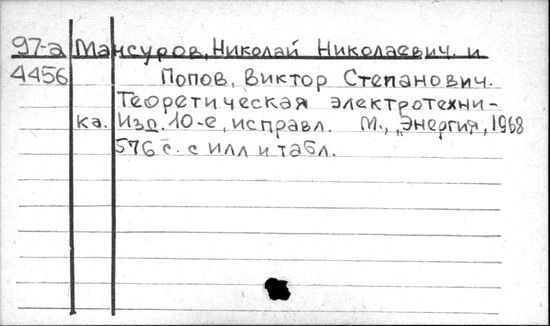 97-а Мансуров, Николай Николаевич и
4456 Попов, Виктор Степанович.
Теоретическая электротехни-
ка. Изд. 10-е, исправл. М., „Энергия, 1968
576 с. с илл и табл.